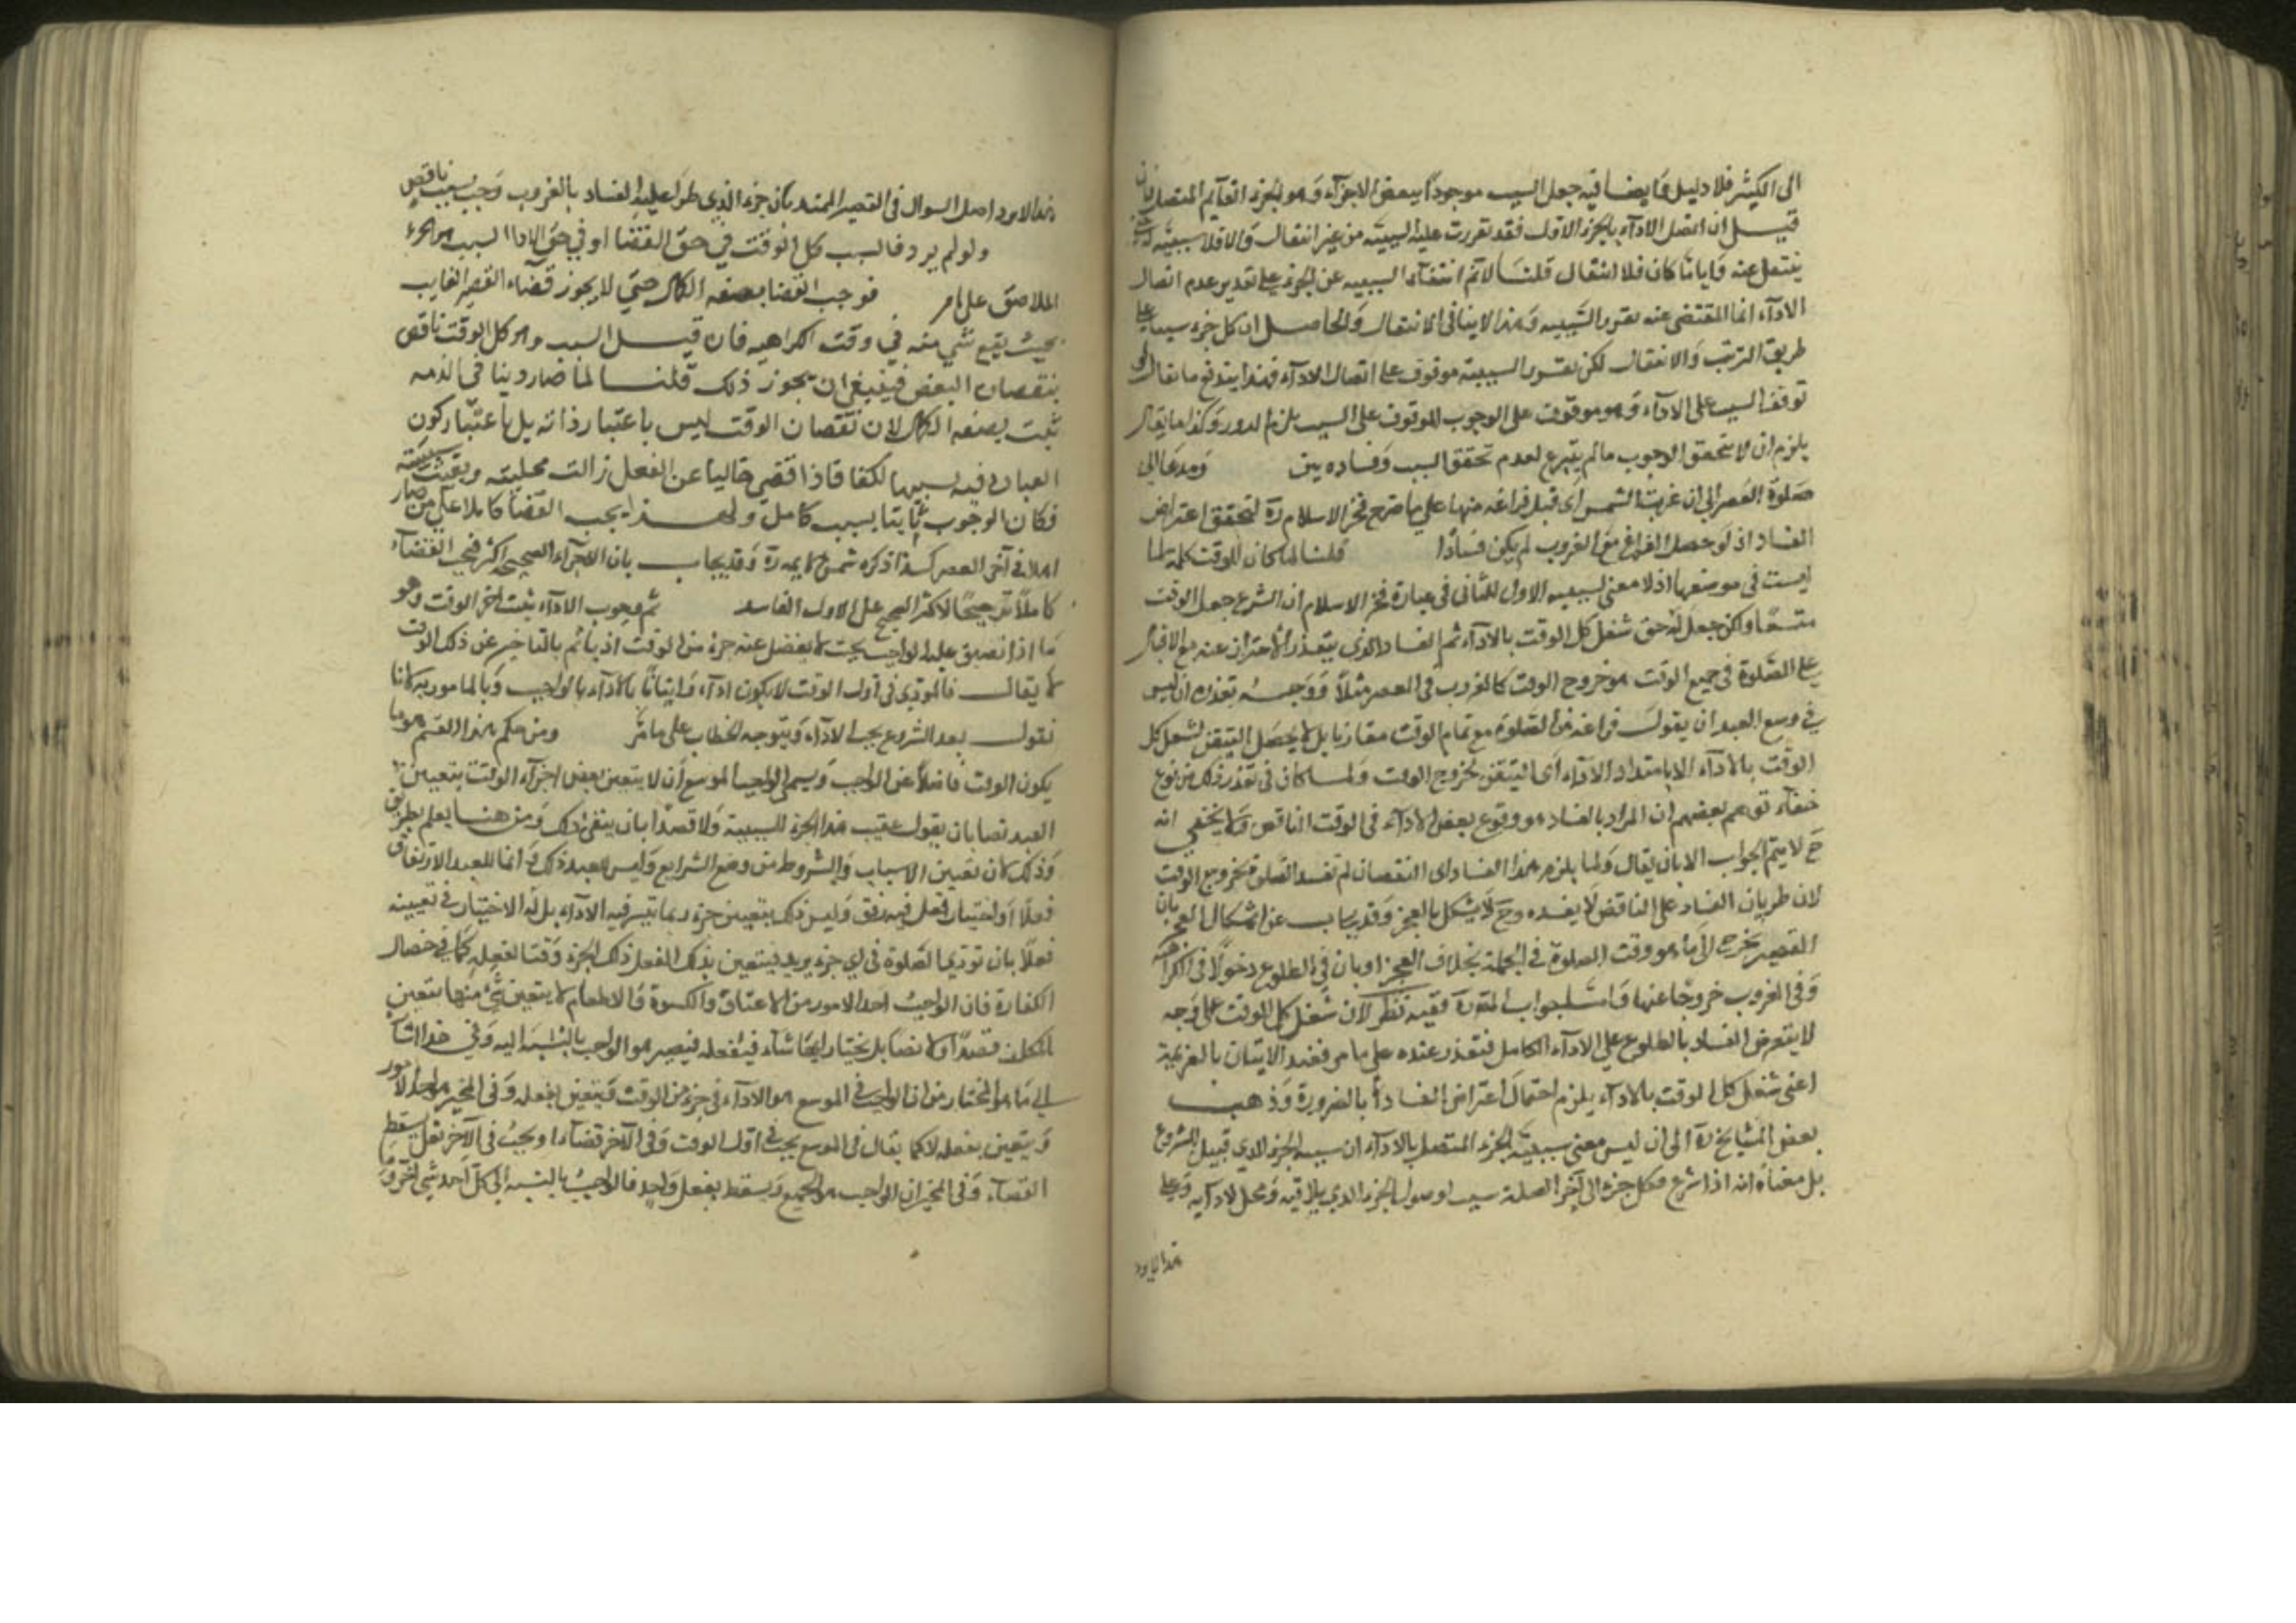 الى الكثير فلا دليل وايضا فيه جعل السبب موجودا ببعض الاجزآء وهو الجزء القآيم المتصل فان
قيــل ان اتصل الادآء بالجزء الاول فقد تقررت عليه السببية من غير انتقال والا فلا سببية له حتى
ينتقل عنه وايا ما كان فلا انتقال قلنــا لا تم انتفآء السببيه عن الجزء على تقدير عدم اتصال
الادآء انما المقتضى عنه تقرر السببيه وهذا لا ينافى الانتقال والحاصل ان كل جزء سبب على
طريق الترتب والانتقال لكن تقرر السببية موقوف على اتصال الادآء فبهذا يندفع ما يقال لو
توقف السبب على الادآء وهو موقوف على الوجوب الموقوف على السبب يلزم الدور وكذا ما يقال
يلزم ان لا يتحقق الوجوب ما لم يشرع لعدم تحقق السبب وفساده بين ومد عالى
صلوة العصر الى ان غربت الشمس اى قبل فراغه منها على ما صرح فخر الاسلام رة ليتحقق اعتراض
الفساد اذ لو حصل الفراغ مع الغروب لم يكن فسادا قلنا لما كان للوقت كلمة لما
ليست فى موضعها اذ لا معنى لسببيه الاول للثانى فى عبارة فخر الاسلام ان الشرع جعل الوقت
متسعا ولكن جعل له حق شغل كل الوقت بالادآء ثم الفساد الذى يتعذر الاحتراز عنه مع الاقبال
على الصلوة فى جميع الوقت هو خروج الوقت كالغروب فى العصر مثلا ووجــه تعذره ان ليس
فى وسع العبد ان يقول فراغه من الصلوة مع تمام الوقت مقارنا بل لا يحصل التيقن لشغل كل
الوقت بالادآء الا بامتداد الادآء اى التيقن بخروج الوقت ولمــا كان فى تعذر ذلك من نوع
خفآء توهم بعضهم ان المراد بالفساد هو وقوع بعض الادآء فى الوقت الناقص ولا يخفى انه
ح لا يتم الجواب الا بان يقال ولما يلزم هذا الفساد اى النقصان لم تفسد الصلوة بخروج الوقت
لان طريان الفساد على الناقص لا يفسده وح لا يشكل بالفجر وقد يجاب عن اشكال الفجر بان
العصر يخرج الى ما هو وقت الصلوة فى الجملة بخلاف الفجر او بان فى الطلوع دخولا فى الكراهة
وفى الغروب خروجا عنها واصل جواب المقرة ففيه نظر لان شغل كل الوقت على وجه
لا يتعرض الفساد بالطلوع على الادآء الكامل فتعذر عنده على ما مر فعند الاتيان بالعزيمة
اعنى شغل كل الوقت بالادآء يلزم احتمال اعتراض الفساد بالضرورة وذهــب
بعض المشايخ رة الى ان ليس معنى سببية الجزء المتصل بالادآء ان سببه الجزء الذى قبيل الشروع
بل معناه انه اذا شرع فكل جزء الى آخر الصلوة سبب لوصول الجزء الذى يلاقيه ومحل لادآيه وعلى
هذا لايرد
هذا لايرد اصل السوال فى القصر الممتد لان جزء الذى طرا عليه الفساد بالغروب وجب بسبب ناقص
ولو لم يرد فالسبب كل الوقت فى حق القضا او فى حق الادا السبب هو الجزء
الملاصق على ما مر فوجب القضا بصفه الكمال حتى لا يجوز قضاء العصر الفايت
بحيث يقع شى منه فى وقت الكراهيه فان قيــل السبب وهو كل الوقت ناقص
بنقصان البعض فينبغى ان يجوز ذلك قلنــا لما صار دينا فى الذمه
ثبت بصفه الكمال لان نقصان الوقت ليس باعتبار ذاته بل باعتبار كون
العبادة فيه تشبيها بالكفار فاذا قضى خاليا عن الفعل زالت محليته وبقيت سببيته
فكان الوجوب ثابتا بسبب كامل ولهــذا يجب القضا كاملا على من صار
اهلا فى آخر العصر كــذا ذكره شمس الايمة رة وقد يجاب بان الاجزآء الصحيحه اكثر فيجب القضآء
كاملا ترجيحا للاكثر الصحيح على الاول الفاسد ثم وجوب الادآء يثبت آخر الوقت وهو
ما اذا تضيق عليه الواجب بحيث لا يفضل عنه جزء من الوقت اذ ياثم بالتاخير عن ذلك الوقت
لا يقال فالمودى فى اول الوقت لا يكون ادآء واتيانا بالادآء بالواجب وبالمامور به لانا
نقول بعد الشروع يجب الادآء ويتوجه الخطاب على ما مر ومن حكم هذا القسم هو ما
يكون الوقت فاضلا عن الواجب ويسمى الواجب الموسع ان لا يتعين بعض اجزآء الوقت بتعيين
العبد نصا بان يقول عينت هذا الجزء للسببية ولا قصدا بان ينوى ذلك ومن هنــا يعلم بطريق
وذلك لان تعيين الاسباب والشروط من وضع الشرايع وليس للعبد ذلك وانما للعبد الارتفاق
فعلا او اختيار فعل فيه رفق وليس ذلك بتعيين جزء ربما تيسر فيه الادآء بل له الاختيار فى تعيينه
فعلا بان تودى الصلوة فى اى جزء يريد فيتعين بذلك الفعل ذلك الجزء وقتا لفعله كما فى خصال
الكفارة فان الواجب احد الامور من الاعتاق والكسوة والاطعام لا يتعين شئ منها بتعيين
المكلف قصدا ولا نصا بل يختار ايها شآء فيفعله فيصير هو الواجب بالنسبة اليه وفى هذا اشآرة
الى ما هو المختار من ان الواجب فى الموسع هو الادآء فى جزء من الوقت ويتعين بفعله وفى المخير احد الامور
ويتعين بفعله لا كما يقال فى الموسع يجب فى اول الوقت وفى الآخر قضآء او يجب فى الآخر نفل يسقط
القضآء وفى المخير ان الواجب هو الجميع ويسقط بفعل واحد فالواجب بالنسبه الى كل احد شئ آخر وهو ما